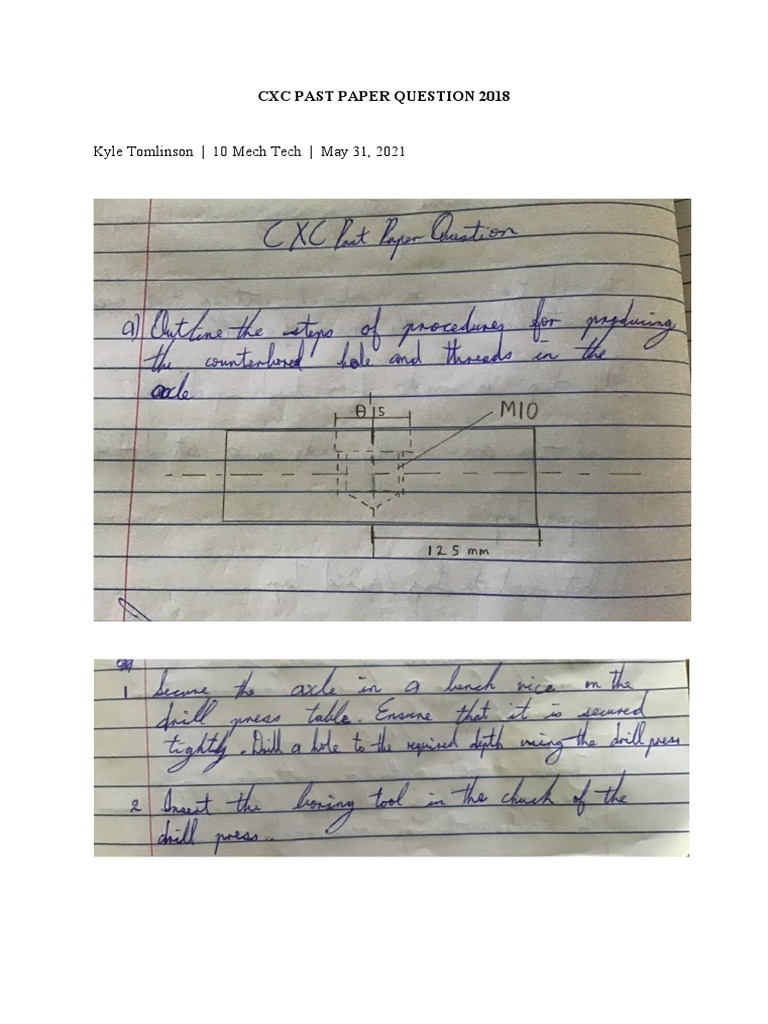 CXC PAST PAPER QUESTION 2018
Kyle Tomlinson | 10 Mech Tech | May 31, 2021
CXC Past Paper Question
a) Outline the steps of procedures for producing
the counterbored hole and threads in the
axle
θ 15
M10
125 mm
1 Secure the axle in a bench vice on the
drill press table. Ensure that it is secured
tightly. Drill a hole to the required depth using the drill press
2 Insert the boring tool in the chuck of the
drill press..